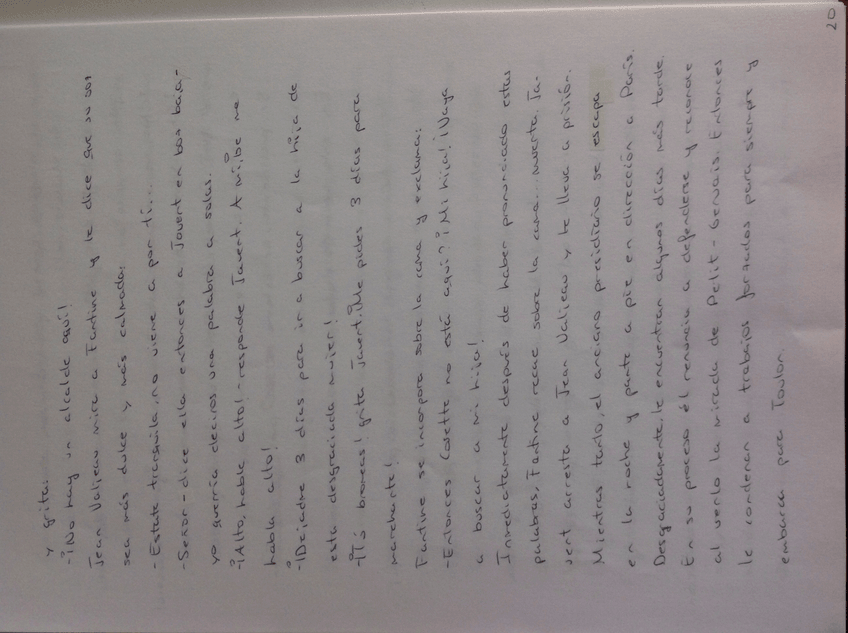 y grita:
-¡No hay un alcalde aquí!
Jean Valjean mira a Fantine y le dice que su voz
sea más dulce y más calmada:
- Estate tranquila, no viene a por tí...
-Señor- dice ella entonces a Javert en bos baja-
yo querría deciros una palabra a solas.
-¡Alto, hable alto!- responde Javert. A mí, se me
habla alto!
-¡Dejadme 3 días para ir a buscar a la hija de
esta desgraciada mujer!
-¡Tú bromeas! grita Javert. ¡Me pides 3 días para
marcharte!
Fantine se incorpora sobre la cama y exclama:
-Entonces Cosette no está aquí? ¡Mi hija! ¡Vaya
a buscar a mi hija!
Inmediatamente después de haber pronunciado estas
palabras, Fantine recae sobre la cama... muerta. Ja-
vert arresta a Jean Valjean y le lleva a prisión.
Mientras tanto, el anciano presidiario se escapa
en la noche y parte a pie en dirección a París.
Desgraciadamente, le encuentran algunos días más tarde.
En su proceso él renuncia a defenderse y reconoce
al verlo la mirada de Petit-Gervais. Entonces
le condenan a trabajos forzados para siempre y
embarca para Toulon.
20